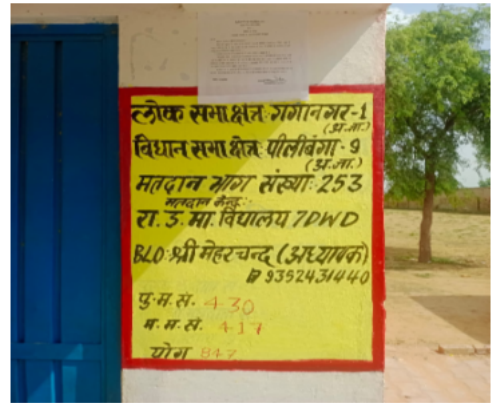 लोक सभा क्षेत्र: गंगानगर-1
(अ.जा.)
विधान सभा क्षेत्र: पीलीबंगा-9
(अ.जा.)
मतदान भाग संख्या: 253
मतदान केन्द्र:
रा. उ. मा. विद्यालय 7DWD
BLO: श्री मेहरचन्द (अध्यापक)
9352431440
पु. म. सं. 430
म. म. सं. 417
योग 847